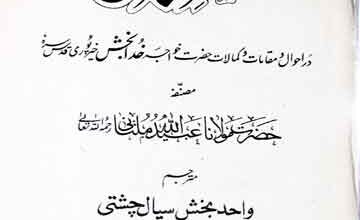 در احوال و مقامات و کمالات حضرت خواجہ خدا بخش خیرپوری قدس سرہ
مصنفہ
حضرت مولانا عبید اللہ ملتانی رحمۃ اللہ تعالیٰ
مترجم
واحد بخش سیال چشتی